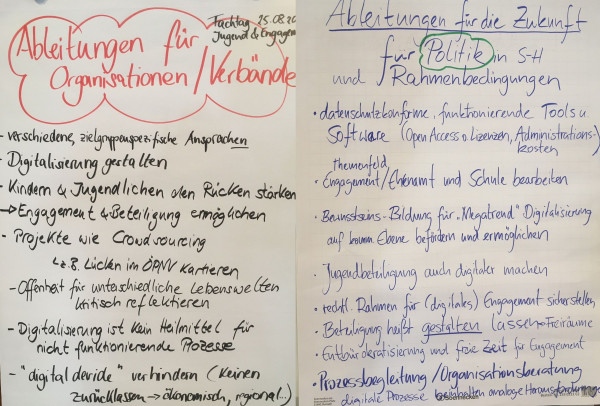 Fachtag 25.08.20
Jugend & Engagem
Ableitungen für
Organisationen/Verbände
- verschiedene, zielgruppenspezifische Ansprachen
- Digitalisierung gestalten
- Kindern & Jugendlichen den Rücken stärken
→ Engagement & Beteiligung ermöglichen
- Projekte wie Crowdsourcing
↳ z.B. Lücken im ÖPNV kartieren
- Offenheit für unterschiedliche Lebenswelten
kritisch reflektieren
- Digitalisierung ist kein Heilmittel für
nicht funktionierende Prozesse
- "digital devide" verhindern (keinen
zurücklassen → ökonomisch, regional...)
Ableitungen für die Zukunft
für Politik in S-H
und Rahmenbedingungen
• datenschutzkonforme, funktionierende Tools u.
Software (Open Access o. Lizenzen, Administrations-
kosten)
themenfeld
• Engagement/Ehrenamt und Schule bearbeiten
• Bewusstseins-Bildung für "Megatrend" Digitalisierung
auf komm. Ebene befördern und ermöglichen
• Jugendbeteiligung auch digitaler machen
• rechtl. Rahmen für (digitales) Engagement sicherstellen
• Beteiligung heißt gestalten lassen → Freiräume
• Entbürokratisierung und freie Zeit für Engagement
• Prozessbegleitung/Organisationsberatung
digitale Prozesse beinhalten analoge Herausforderungen